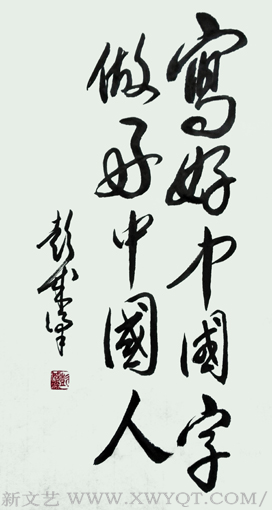 寫好中國字
做好中國人
新文艺 WWW.XWYQT.COM/